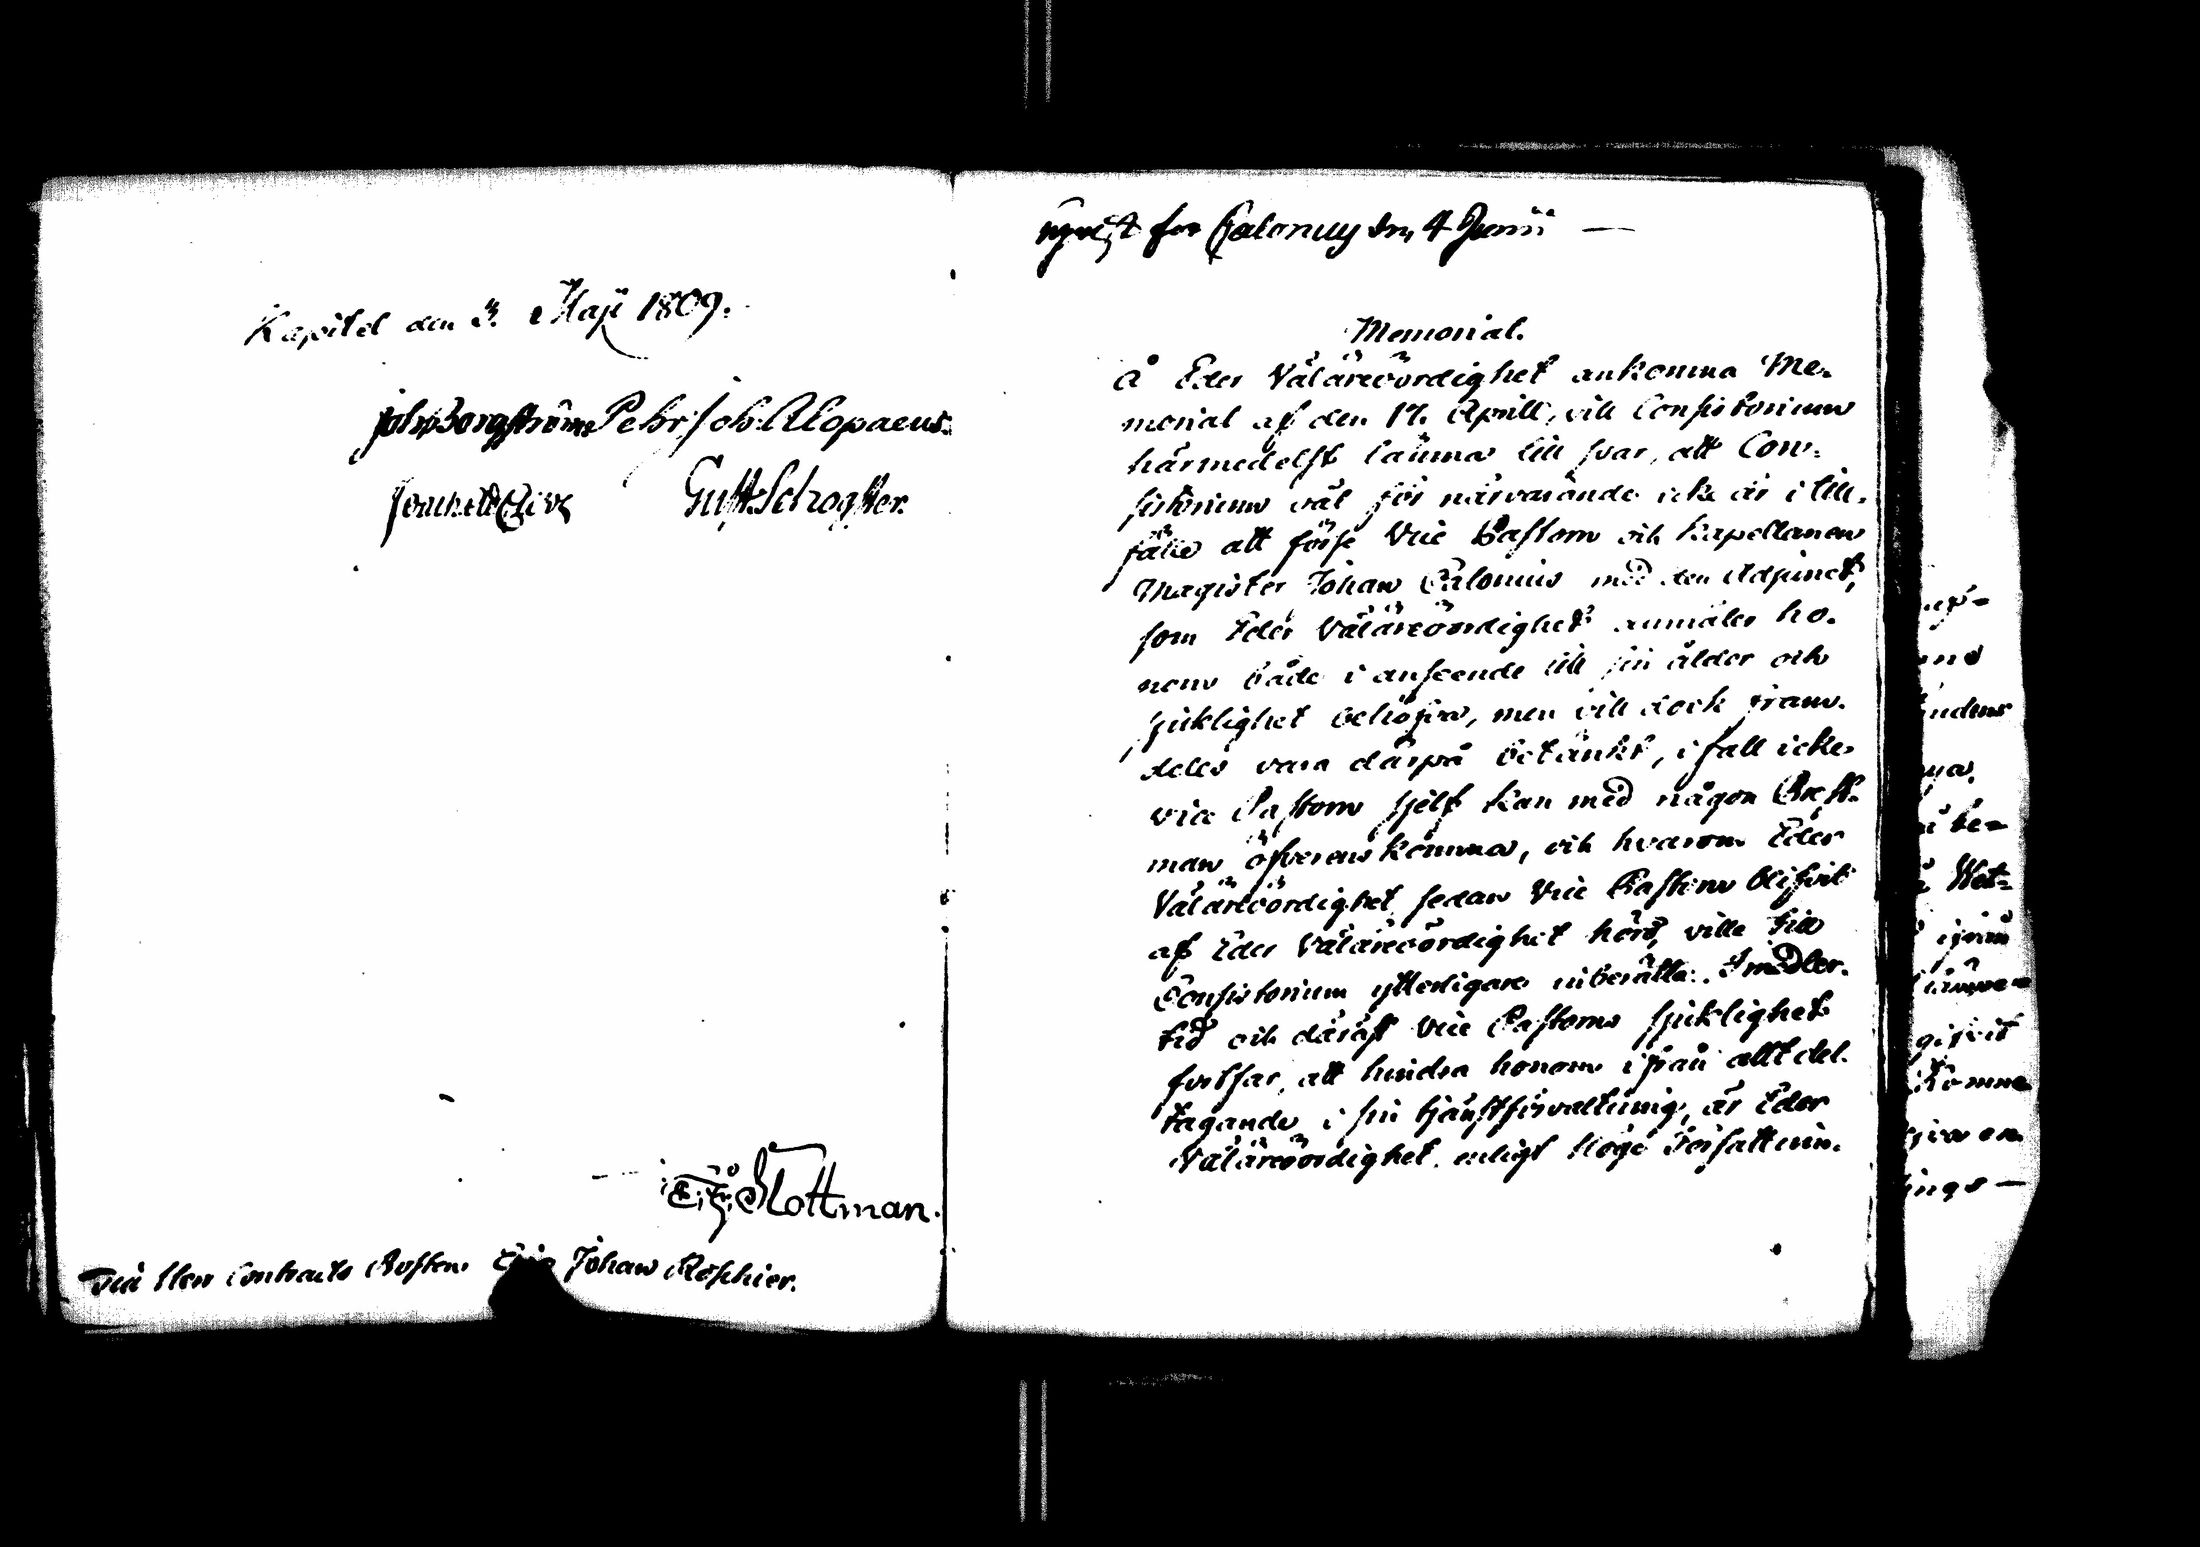 Kapitel den 3. Maji 1809.
Joh. Borgström Pehr Joh. Alopaeus.
Gust. Schogster.
C. F. Slottman.
Till Herr Contracts Prosten Johan Roschier.
upvist for Calonius den 4 Junii —
Memorial.
Å Eder Välärevördighet ankomna Me-
morial af den 17. Aprill, vill Consistorium
härmedelst lämna till svar, att Con-
sistorium väl för närvarande icke är i till-
fälle att förse Vice Pastorn och Kapellanen
Magister Johan Calonius med den Adjunct,
som Eder Välärevördighet anmäler ho-
nom både i anseende till sin ålder och
sjuklighet behöfva, men vill dock fram-
deles vara därpå betänkt, i fall icke
vice Pastorn sjelf kan med någon Prest-
man öfverenskomma, och hvarom Eder
Välärevördighet sedan Vice Pastorn blifvit
af Eder Välärevördighet hörd, ville till
Consistorium ytterligare inberätta. Imedler-
tid och däräst Vice Pastorns sjuklighet
fortfar, att hindra honom ifrån allt del-
tagande i sin tjänstförvaltning, är Eder
Välärevördighet enligt Höge Författnin-
ands
tindens
be-
Wet-
ifrån
lämne-
gifvit
komma
ings —